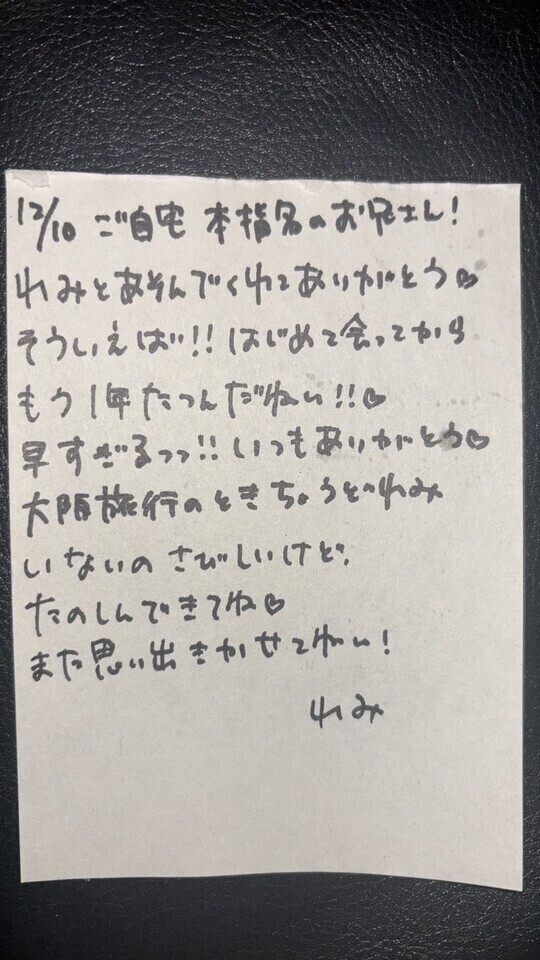 12/10 ご自宅 本指名のお兄さん!
れみとあそんでくれてありがとう♡
そういえば!! はじめて会ってから
もう1年たつんだねぃ!!♡
早すぎるっっ!! いつもありがとう♡
大阪旅行のときちょうどれみ
いないのさびしいけど、
たのしんできてね♡
また思い出きかせてねぃ!
れみ